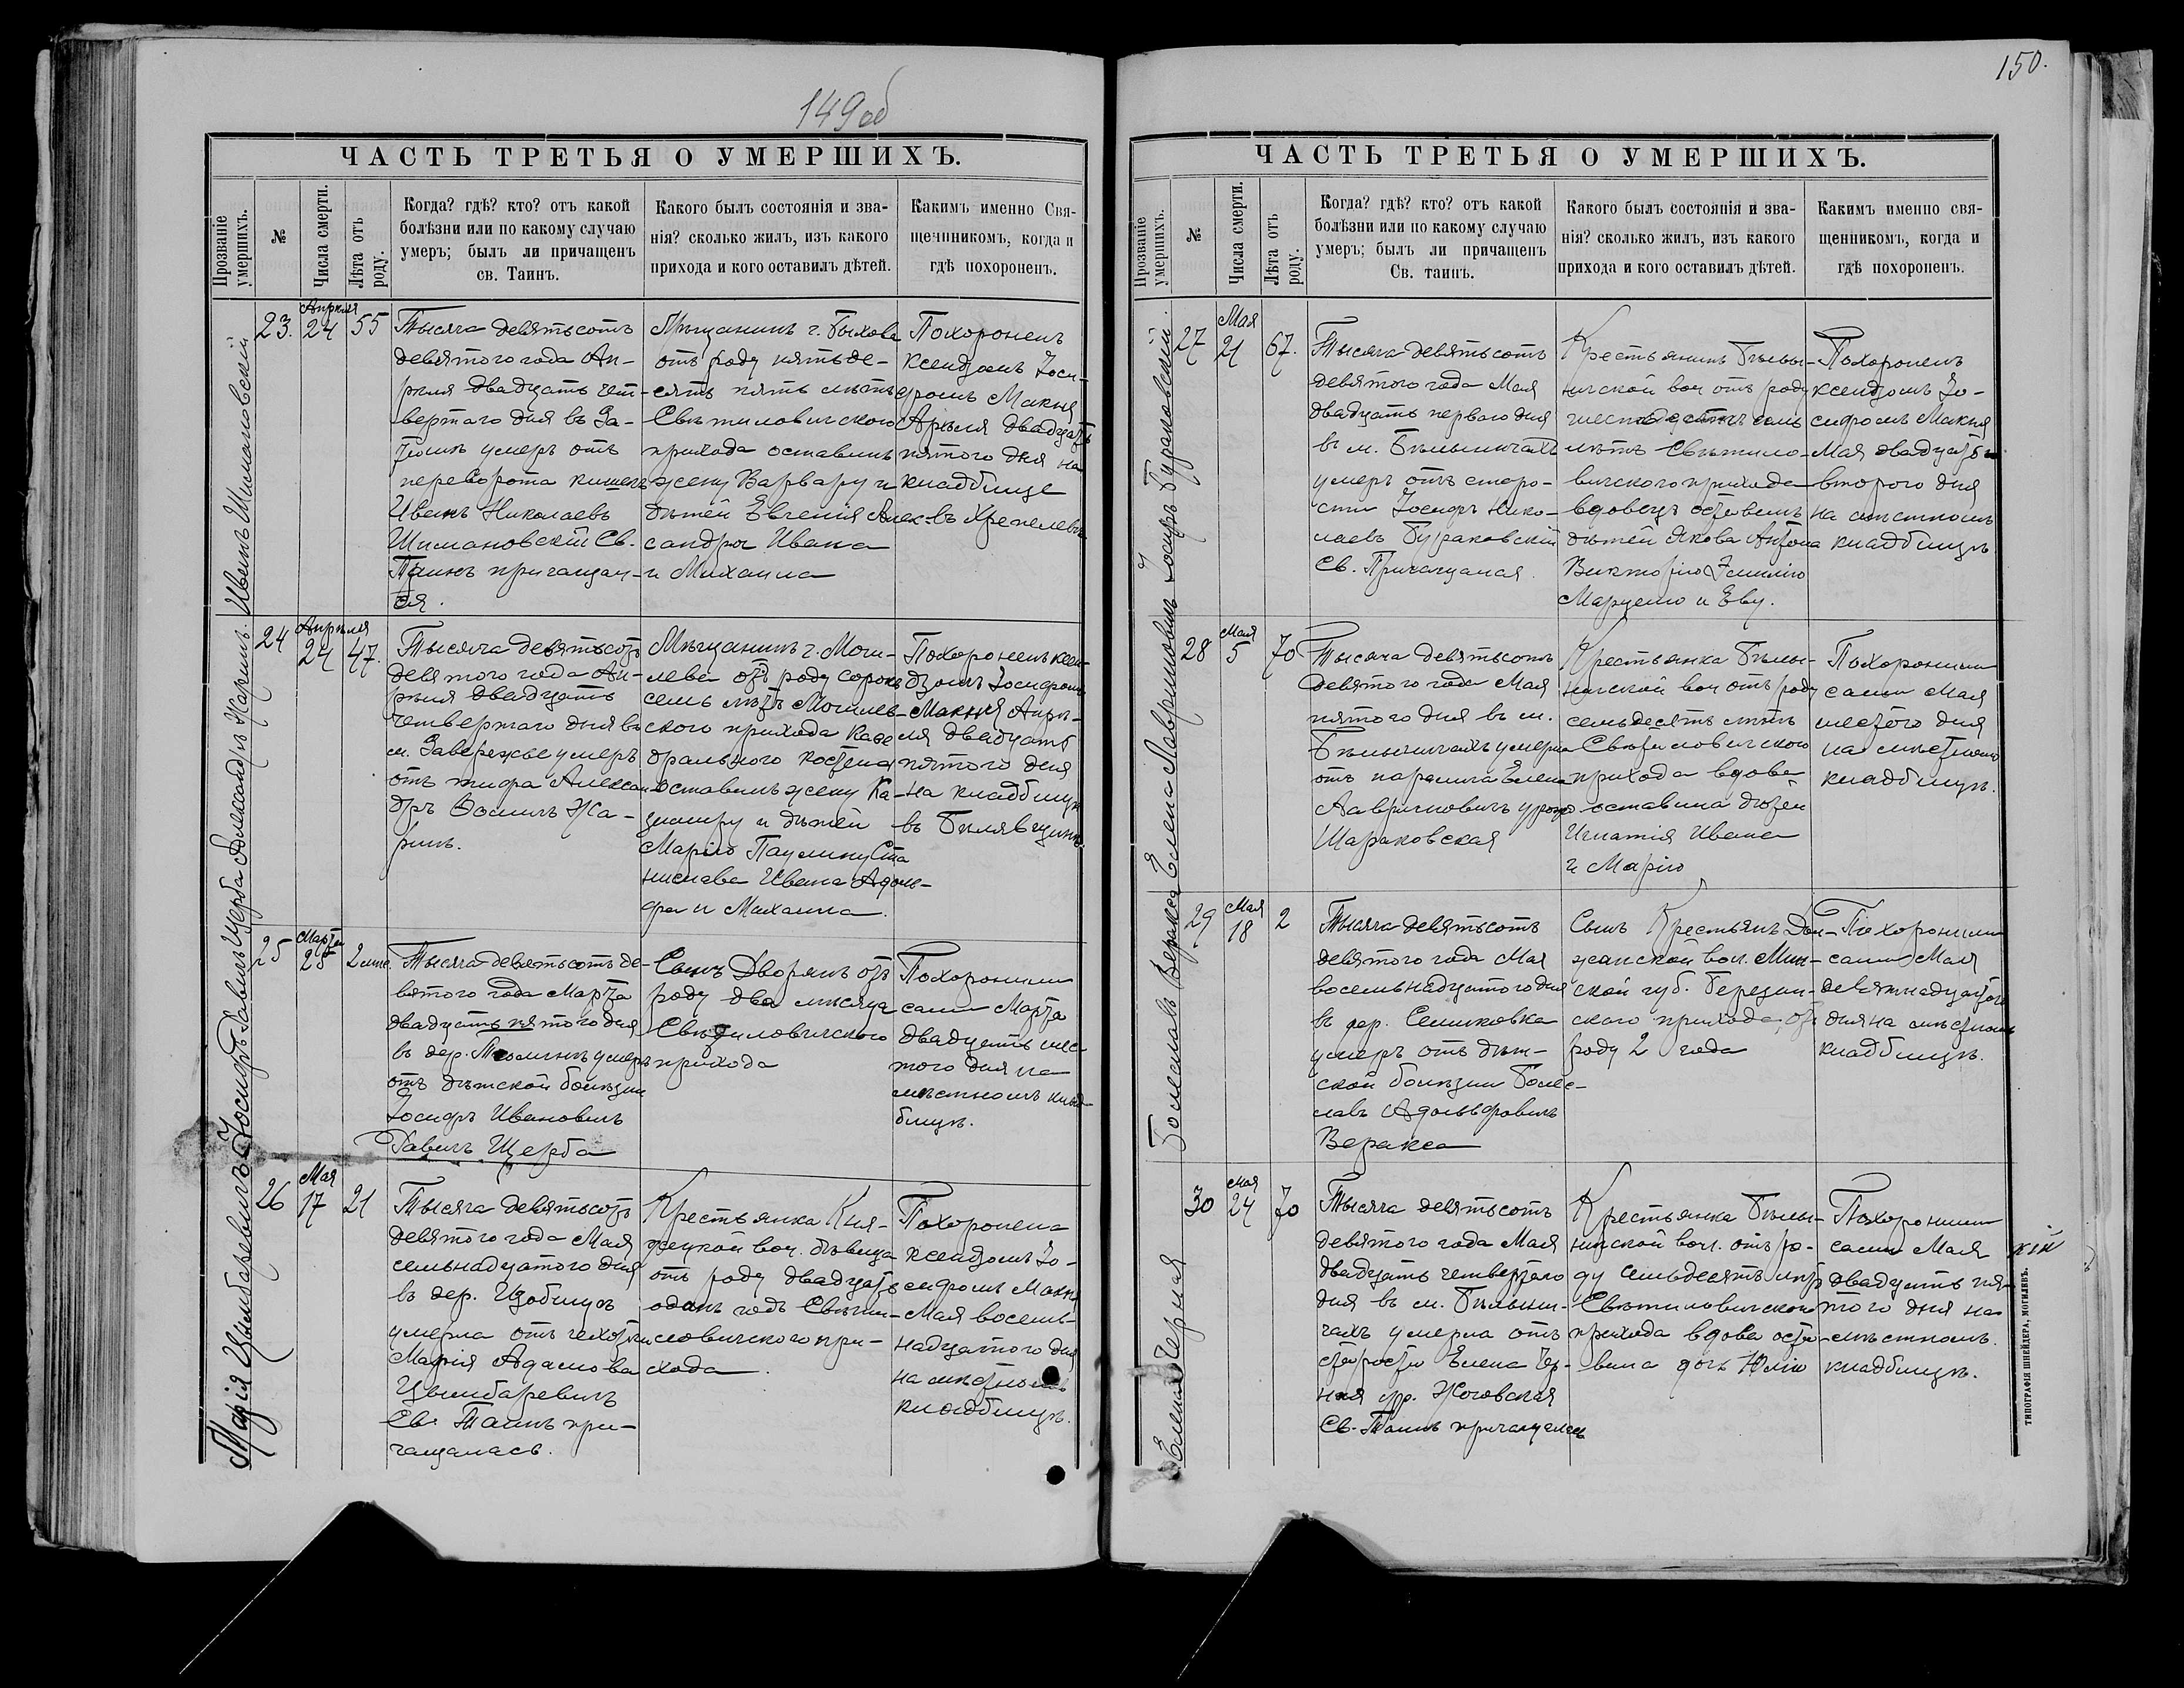 149 об
ЧАСТЬ ТРЕТЬЯ О УМЕРШИХЪ.
Прозваніе умершихъ.
№
Числа смерти.
Лѣта отъ роду.
Когда? гдѣ? кто? отъ какой
болѣзни или по какому случаю
умеръ; былъ ли причащенъ
св. Таинъ.
Какого былъ состоянія и зва-
нія? сколько жилъ, изъ какого
прихода и кого оставилъ дѣтей.
Какимъ именно Свя-
щенникомъ, когда и
гдѣ похороненъ.
Иванъ Шимановскій
23.
Апрѣля
24
55
Тысяча девятьсотъ
девятого года Ап-
рѣля двадцать чет-
вертого дня въ За-
умеръ отъ
переворота кишекъ
Иванъ Николаевъ
Шимановскій Св.
Таинъ причащал-
ся.
Мѣщанинъ г. Быхова
отъ роду пятьде-
сятъ пять лѣтъ
Свѣтиловичского
прихода оставилъ
жену Варвару и
дѣтей Евгенія Алек-
сандра Ивана
и Михаила
Похороненъ
ксендзомъ Іоси-
фомъ Макня
Арѣля двадцать
пятого дня на
кладбище
въ
Александръ Жаринъ.
24
Апрѣля
24
47.
Тысяча девятьсотъ
девятого года Ап-
рѣля двадцать
четвертаго дня въ
м. Завережье умеръ
отъ тифа Алексан-
дръ Осиповъ Жа-
ринъ.
Мѣщанинъ г. Моги-
лева отъ роду сорокъ
семь лѣтъ Могилев-
ского прихода Кафе
дрального костела
оставилъ жену Ка-
зимиру и дѣтей
Марію Паулину Ста
нислава Ивана Адоль-
фа и Михаила.
Похороненъ ксен-
дзомъ Іосифомъ
Макня Апрѣ-
ля двадцать
пятого дня
на кладбищѣ
въ
Іосифъ Равичъ Щерба
25
Марта
25
2 мѣс.
Тысяча девятьсотъ де-
вятого года Марта
двадцать пятого дня
въ дер. умеръ
отъ дѣтской болѣзни
Іосифъ Ивановичъ
Равичъ Щерба
Сынъ Дворянъ отъ
роду два мѣсяца
Свѣтиловичского
прихода
Похоронили
сами Марта
двадцать шес-
того дня на
мѣстномъ клад-
бищѣ.
Марія Цымбаревичъ
26
Мая
17
21
Тысяча девятьсотъ
девятого года Мая
семьнадцатого дня
въ дер.
умерла отъ чахотки
Марія Адамова
Цымбаревичъ
Св. Таинъ при-
чащалась.
Крестьянка Кня-
жецкой вол. дѣвица
отъ роду двадцать
одинъ годъ Свѣти-
ловичского при-
хода.
Похоронена
ксендзомъ Іо-
сифомъ Макня
Мая восемь-
надцатого дня
на мѣстномъ
кладбищѣ.
150.
ЧАСТЬ ТРЕТЬЯ О УМЕРШИХЪ.
Прозваніе умершихъ.
№
Числа смерти.
Лѣта отъ роду.
Когда? гдѣ? кто? отъ какой
болѣзни или по какому случаю
умеръ; былъ ли причащенъ
Св. таинъ.
Какого былъ состоянія и зва-
нія? сколько жилъ, изъ какого
прихода и кого оставилъ дѣтей.
Какимъ именно свя-
щенникомъ, когда и
гдѣ похороненъ.
Іосифъ Бураковскій.
27
Мая
21
67.
Тысяча девятьсотъ
девятого года Мая
двадцать первого дня
въ м. Бѣлыничахъ
умеръ отъ старо-
сти Іосифъ Нико-
лаевъ Бураковскій
Св. Причащался.
Крестьянинъ Бѣлы-
ничской вол отъ роду
шестьдесятъ семь
лѣтъ Свѣтило-
вичского прихода
вдовецъ оставилъ
дѣтей Якова Антона
Викторію Эмилію
Марцелю и Еву.
Похороненъ
ксендзомъ Іо-
сифомъ Макня
Мая двадцать
второго дня
на мѣстномъ
кладбищѣ.
Елена Лавриновичъ
28
Мая
5
70
Тысяча девятьсотъ
девятого года Мая
пятого дня въ м.
Бѣлыничахъ умерла
отъ паралича Елена
Лавриновичъ урожд
Шараковская
Крестьянка Бѣлы-
ничской вол отъ роду
семьдесятъ лѣтъ
Свѣтиловичского
прихода вдова
оставила дѣтей
Игнатія Ивана
и Марію
Похоронили
сами Мая
шестого дня
на мѣстномъ
кладбищѣ.
Болеславъ Веракса
29
Мая
18
2
Тысяча девятьсотъ
девятого года Мая
восемьнадцатого дня
въ дер. Семиковка
умеръ отъ дѣт-
ской болѣзни Боле-
славъ Адольфовичъ
Веракса
Сынъ Крестьянъ
вол. Мин-
ской губ. Березин-
ского прихода, отъ
роду 2 года
Похоронили
сами Мая
девятнадцатого
дня на мѣстномъ
кладбищѣ.
Елена Черная
30
Мая
24
70
Тысяча девятьсотъ
девятого года Мая
двадцать четвертаго
дня въ м. Бѣлыни-
чахъ умерла отъ
старости Елена Чер-
ная ур. Жоговская
Св. Таинъ причащалась
Крестьянка Бѣлы-
ничской вол. отъ ро-
ду семьдесятъ лѣтъ
Свѣтиловичского
прихода вдова оста-
вила дочь Юлію
Похоронили
сами Мая
двадцать пя-
того дня на
мѣстномъ.
кладбищѣ.
ТИПОГРАФІЯ ШНЕЙДЕРА, МОГИЛЕВЪ.